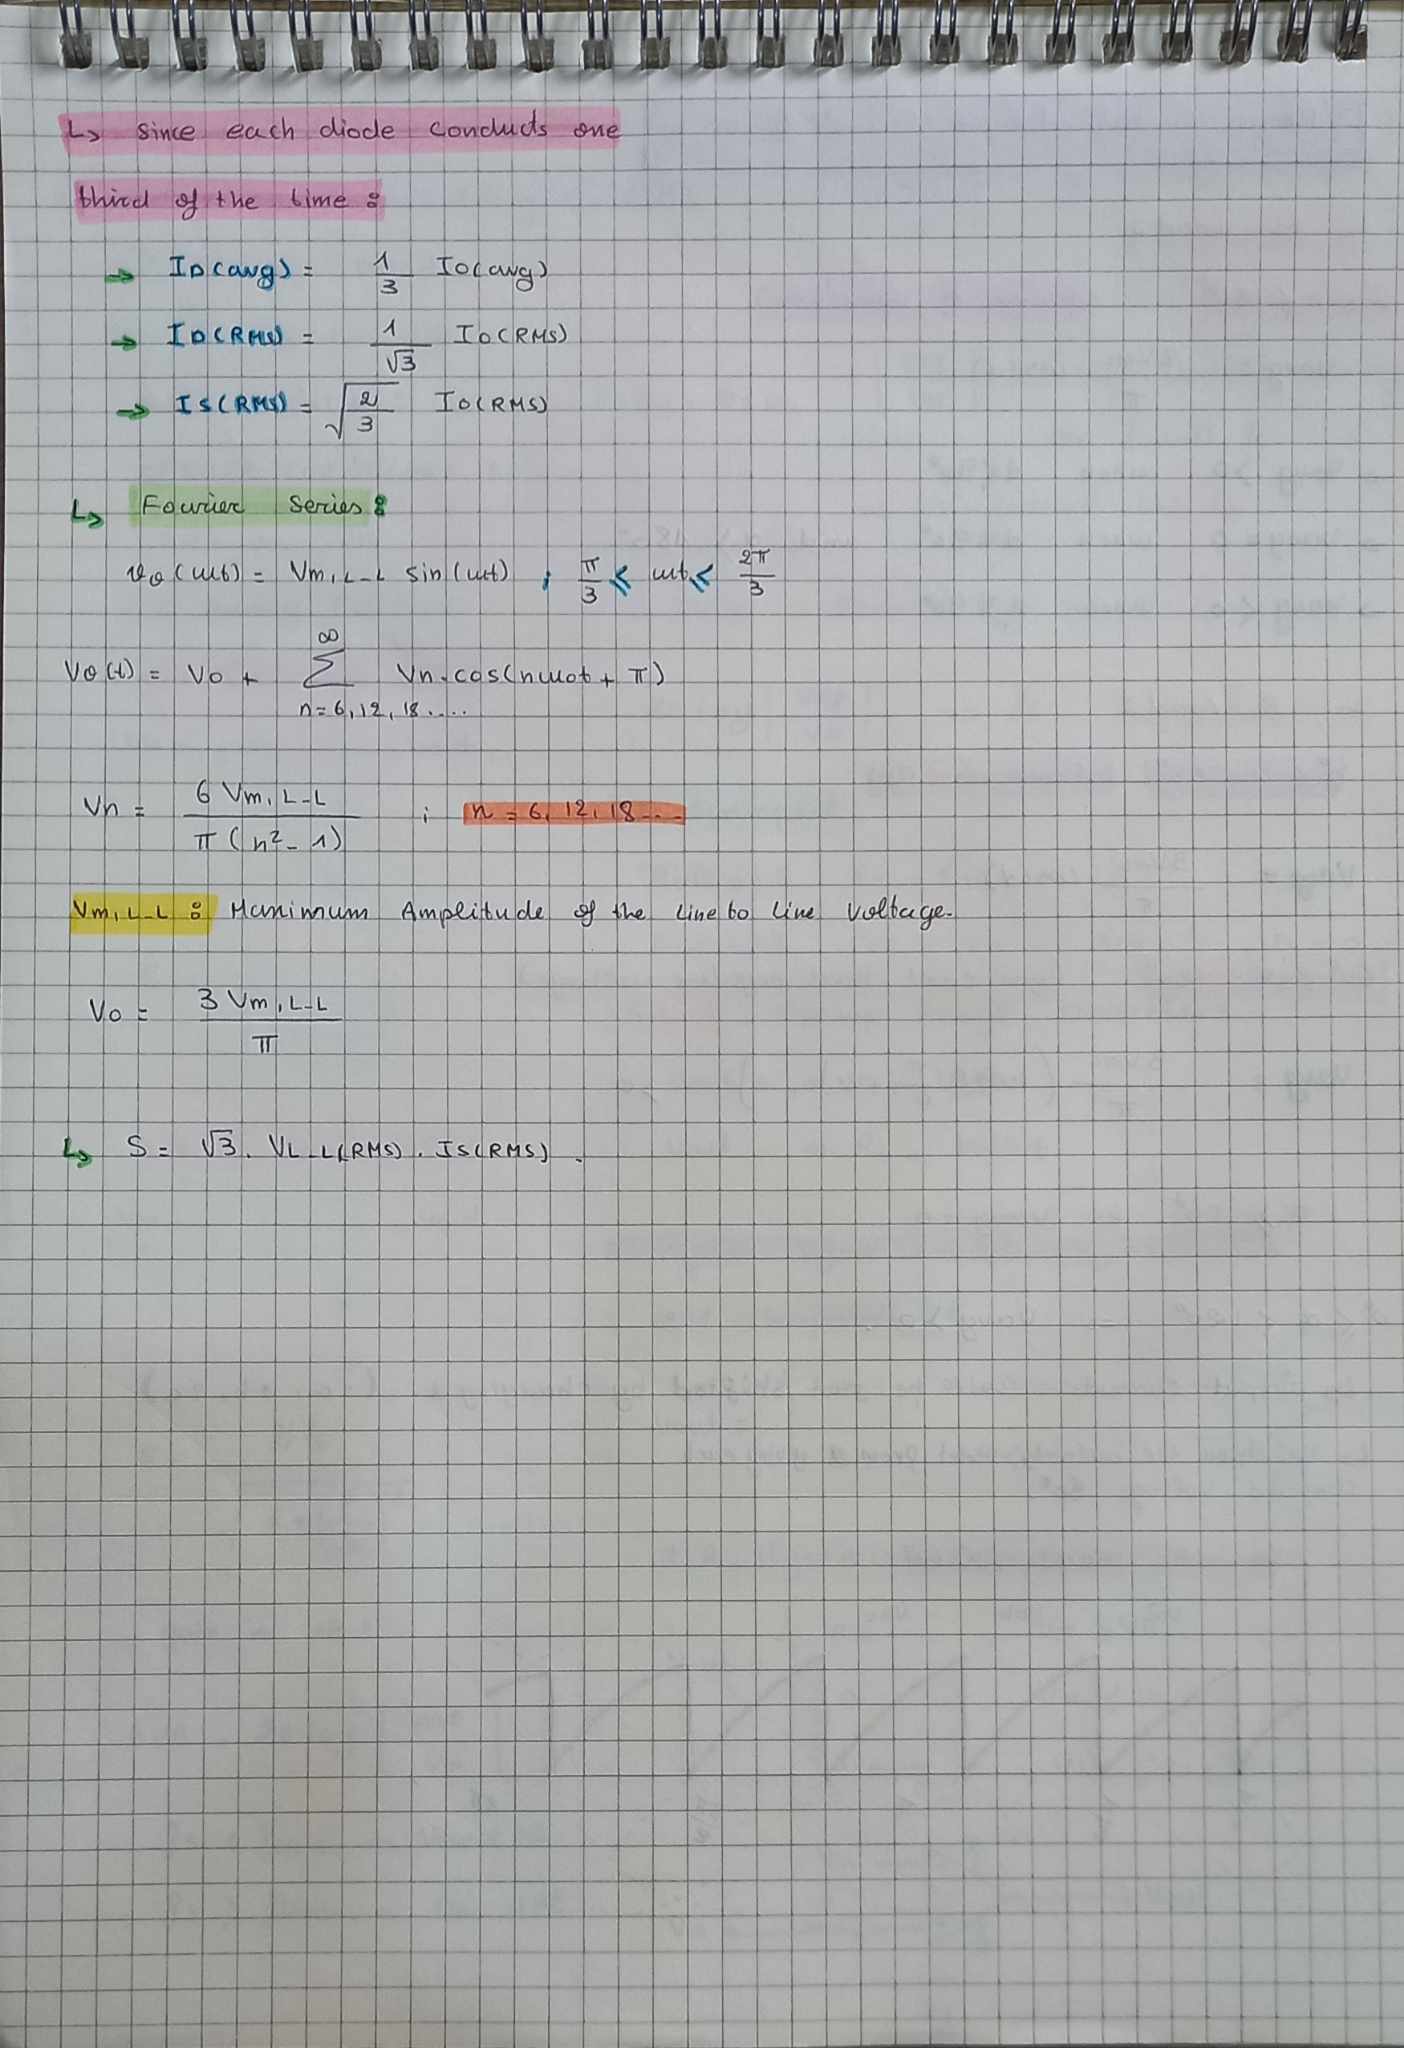 ↳ since each diode conducts one
third of the time :
→ ID(avg) = 1/3 IO(avg)
→ ID(RMS) = 1/√3 IO(RMS)
→ IS(RMS) = √(2/3) IO(RMS)
↳ Fourier Series :
vo(ωt) = Vm,L-L sin(ωt) ; π/3 ≤ ωt ≤ 2π/3
Vo(t) = Vo + ∞∑n=6,12,18.... Vn.cos(nωot + π)
Vn = 6 Vm,L-L / π(n²-1) ; n = 6, 12, 18...
Vm,L-L : Maximum Amplitude of the line to line voltage.
Vo = 3 Vm,L-L / π
↳ S = √3. VL-L(RMS) . IS(RMS) .